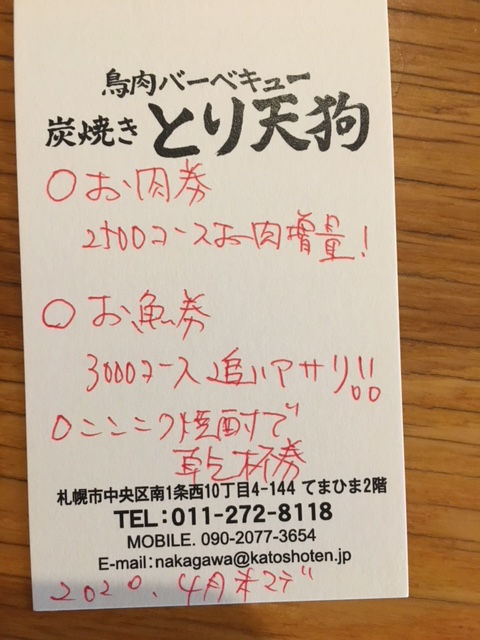 鳥肉バーベキュー
炭焼き とり天狗
○お肉券
2500コースお肉増量!
○お魚券
3000コース追いアサリ!!
○ニンニク焼酎で
乾杯券
札幌市中央区南1条西10丁目4-144 てまひま2階
TEL:011-272-8118
MOBILE. 090-2077-3654
E-mail:nakagawa@katoshoten.jp
2020.4月末マデ